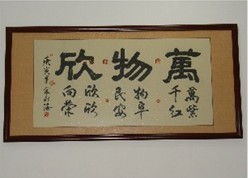 萬物欣
萬紫
千红
物阜
民安
欣欣
向荣